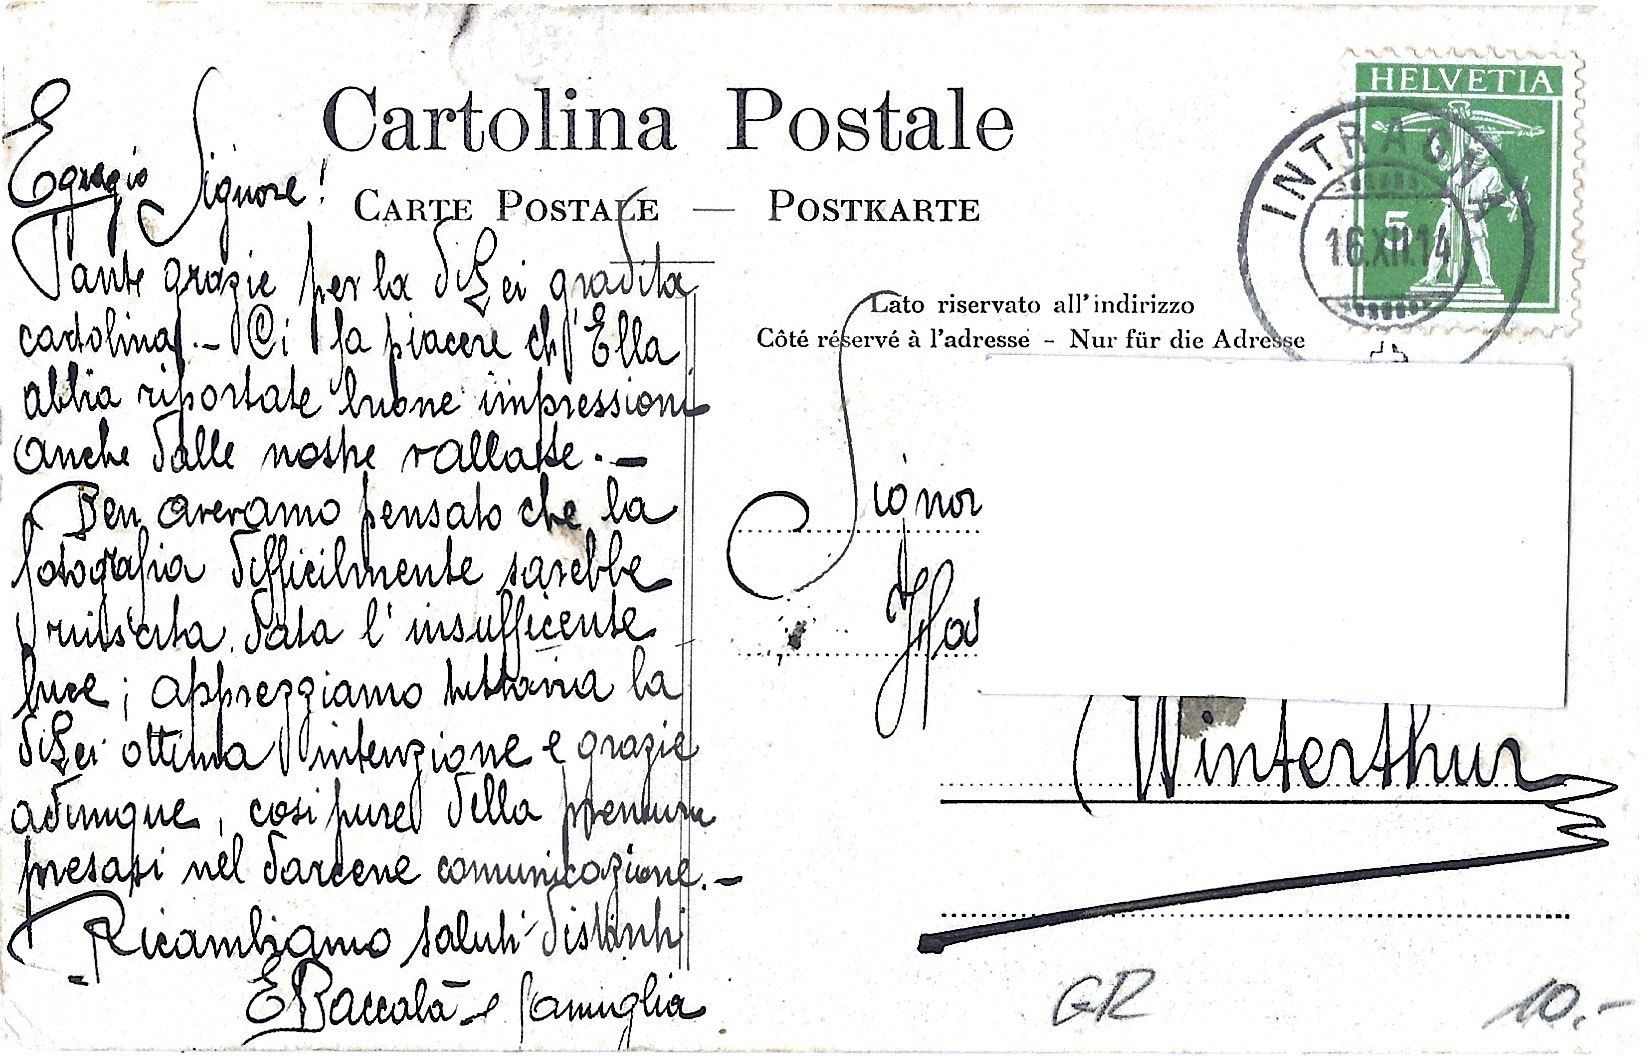 Cartolina Postale
CARTE POSTALE — POSTKARTE
Lato riservato all'indirizzo
Côté réservé à l'adresse - Nur für die Adresse
HELVETIA
5
INTRAGNA
16.XII.14
Egregio Signore!
Tante grazie per la di Lei gradita
cartolina. - Ci fa piacere ch'Ella
abbia riportate buone impressioni
anche dalle nostre vallate. -
Ben avevamo pensato che la
fotografia difficilmente sarebbe
riuscita data l'insufficente
luce; apprezziamo tuttavia la
di Lei ottima intenzione e grazie
adunque, così pure della premura
presasi nel darcene comunicazione. -
Ricambiamo saluti distinti
E Baccalà e famiglia
Signor
Winterthur
GR
10.-